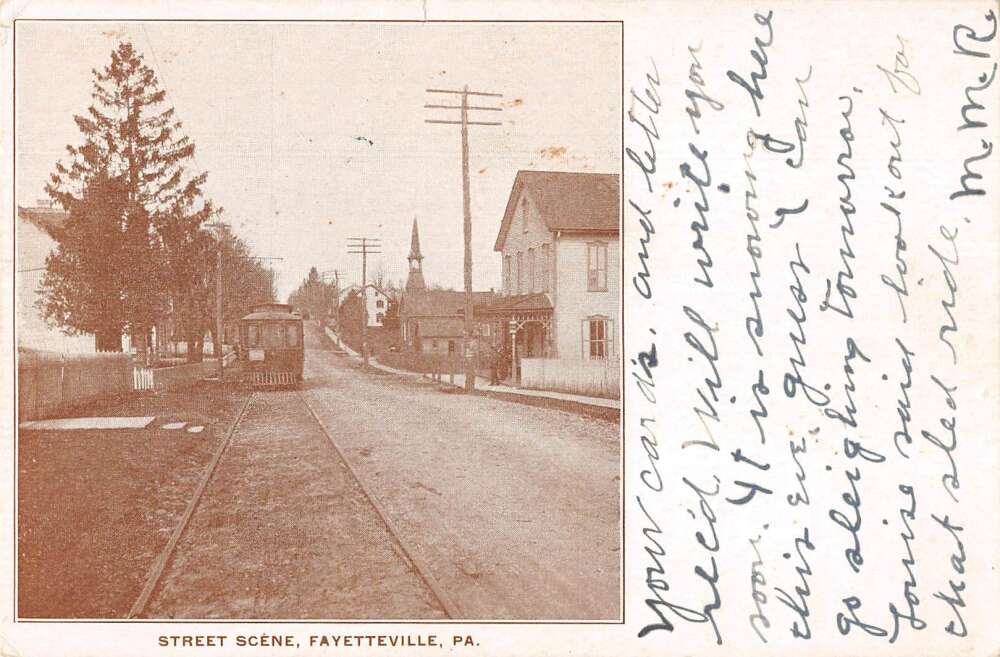 STREET SCÉNE, FAYETTEVILLE, PA.
your cards. and letter
rec'd, Will write you
soon. It is snowing here
this eve, guess I can
go sleighing tomorrow,
Louise said look out for
that sled ride. M. M. R.